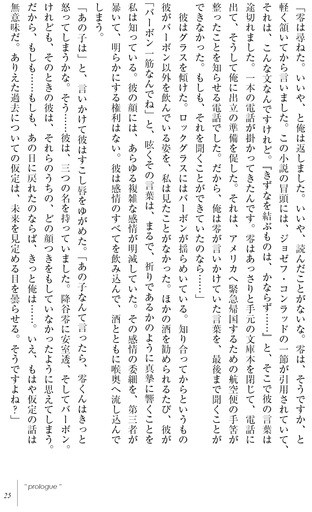 「零は尋ねた。いいや、と俺は返しました。いいや、読んだことがないな。零は、そうですか、と
軽く頷いてから言いました。この小説の冒頭には、ジョゼフ・コンラッドの一節が引用されていて、
それは、こんな文なんですけれど。『きずなを結ぶものは、かならず……』と、そこで彼の言葉は
途切れました。一本の電話が掛かってきたんです。零はあっさりと手元の文庫本を閉じて、電話に
出て、そうして俺に出立の準備を促した。それは、アメリカへ緊急帰国するための航空便の手筈が
整ったことを知らせる電話でした。だから、俺は零が言いかけていた言葉を、最後まで聞くことが
できなかった。もしも、それを聞くことができていたのなら……」
　彼はグラスを傾けた。ロックグラスにはバーボンが揺らめいている。知り合ってからというもの
彼がバーボン以外を飲んでいる姿を、私は見たことがなかった。ほかの酒を勧められるたび、彼が
「バーボン一筋なんでね」と、呟くその言葉は、まるで、祈りであるかのように真摯に響くことを
私は知っている。彼の顔には、あらゆる複雑な感情が明滅していた。その感情の委細を、第三者が
暴いて、明らかにする権利はない。彼は感情のすべてを飲み込んで、酒とともに喉奥へ流し込んで
しまう。
「あの子は」と、言いかけて彼はすこし唇をゆがめた。「あの子なんて言ったら、零くんはきっと
怒ってしまうかな。そう……彼は、三つの名を持っていました。降谷零に安室透、そしてバーボン。
けれども、そのときの彼は、それらのうちの、どの顔つきをもしていなかったように思えてしまう。
だから、もしも……もしも、あの日に戻れたのならば、きっと俺は……。いえ、もはや仮定の話は
無意味だ。ありえた過去についての仮定は、未来を見定める目を曇らせる。そうですよね？」
"prologue"
25